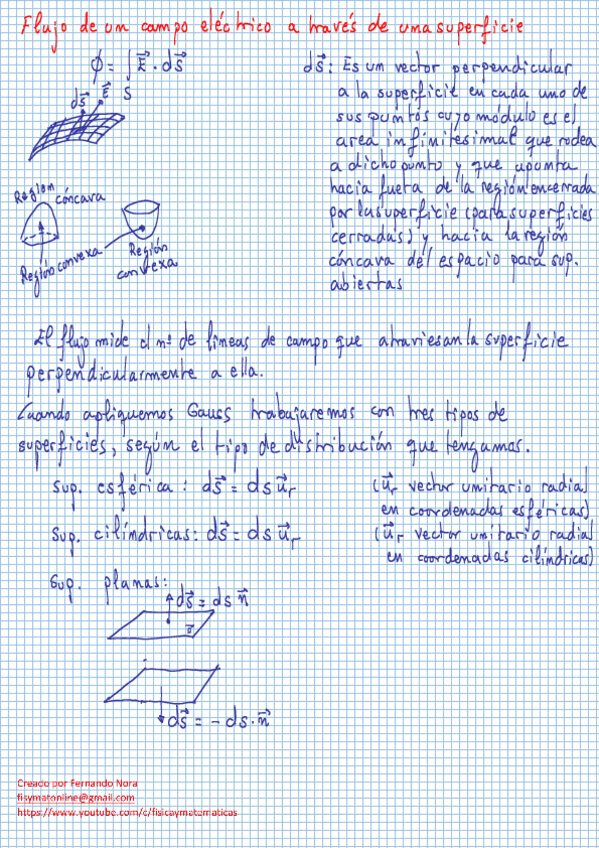 Flujo de un campo eléctrico a través de una superficie
ϕ = ∫ E⃗ · dS⃗
S
dS⃗ E⃗
dS⃗: Es un vector perpendicular
a la superficie en cada uno de
sus puntos cuyo módulo es el
area infinitesimal que rodea
a dicho punto y que apunta
hacia fuera de la región encerrada
por la superficie (para superficies
cerradas) y hacia la región
cóncava del espacio para sup.
abiertas
Region cóncava
Región convexa
Región
convexa
El flujo mide el nº de líneas de campo que atraviesan la superficie
perpendicularmente a ella.
Cuando apliquemos Gauss trabajaremos con tres tipos de
superficies, según el tipo de distribución que tengamos.
Sup. esférica: dS⃗ = ds u⃗r (u⃗r vector unitario radial
en coordenadas esféricas)
Sup. cilíndricas: dS⃗ = ds u⃗r (u⃗r vector unitario radial
en coordenadas cilíndricas)
Sup. planas:
dS⃗ = ds n⃗
dS⃗ = - ds · n⃗
Creado por Fernando Nora
fisymatonline@gmail.com
https://www.youtube.com/c/fisicaymatematicas